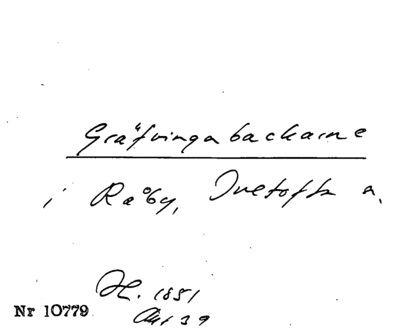 Gräfvingabackarne
i Råby, Tuetofta s.
H. 1851
Akt 39
Nr 10779